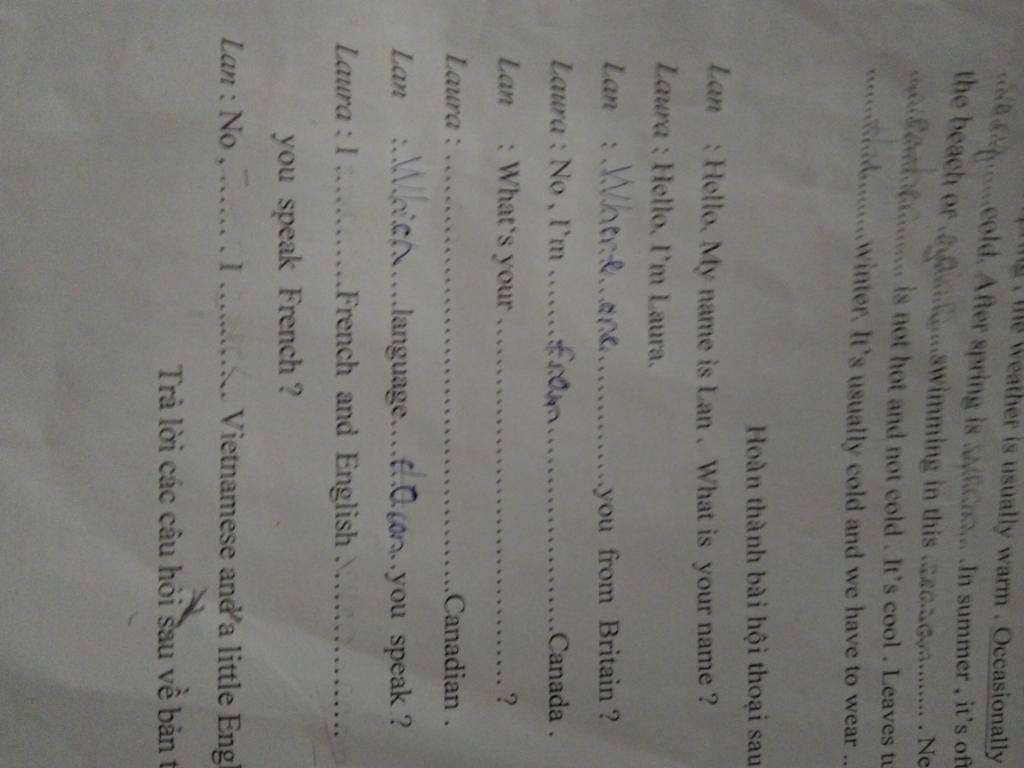 the weather is usually warm . Occasionally
cold. After spring is .In summer , it's
the beach or swimming in this
is not hot and not cold . It's cool . Leaves
Winter. It's usually cold and we have to wear ..
Hoàn thành bài hội thoại sau
Lan : Hello. My name is Lan . What is your name ?
Laura : Hello. I'm Laura.
Lan : .Where...are..............you from Britain ?
Laura : No , I'm .......from..........................Canada .
Lan : What's your .............................................. ?
Laura : ......................................................Canadian .
Lan :..Which.....language.... .you speak ?
Laura : I ..............French and English ......................
you speak French ?
Lan : No , ....... . I ............. Vietnamese and a little
Trả lời các câu hỏi sau về bản